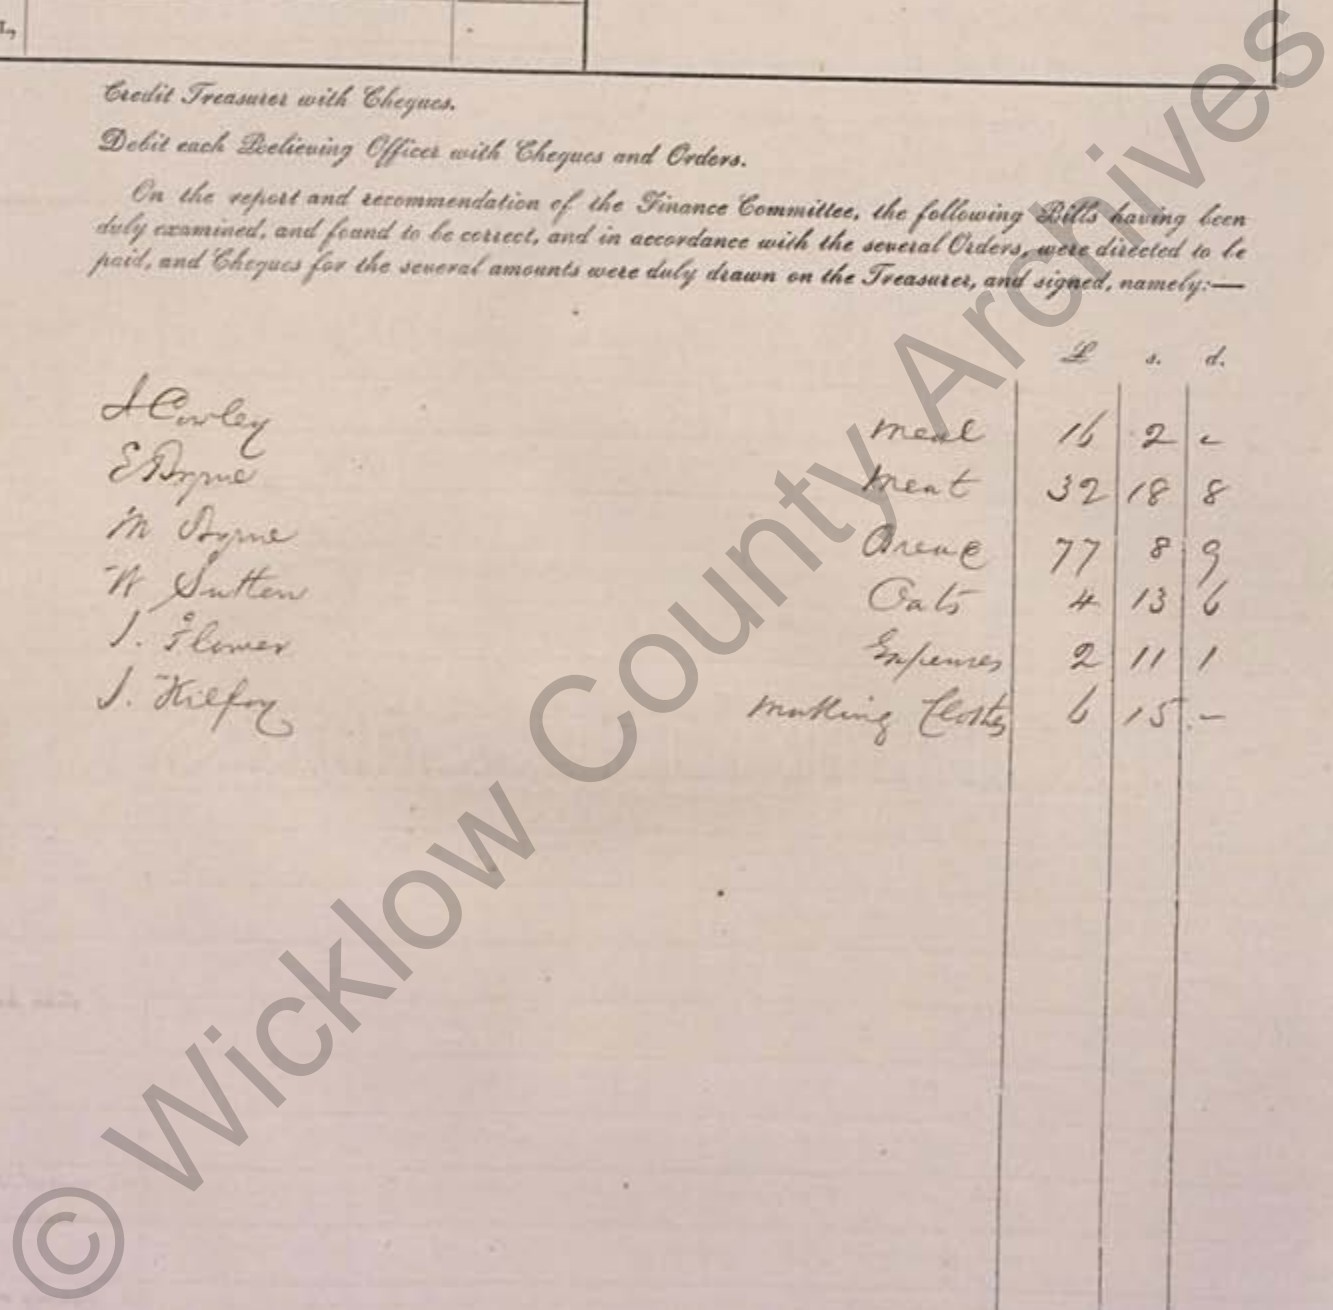 Credit Treasurer with Cheques.
Debit each Relieving Officer with Cheques and Orders.
On the report and recommendation of the Finance Committee, the following Bills having been
duly examined, and found to be correct, and in accordance with the several Orders, were directed to be
paid, and Cheques for the several amounts were duly drawn on the Treasurer, and signed, namely:—
£ s. d.
Cowley meal 16 2 -
E Byrne meat 32 18 8
M Byrne 77 8 9
W Sutton Oats 4 13 6
J. Flower Expenses 2 11 1
J. Kilfoy making Clothes 6 15 -
© Wicklow County Archives